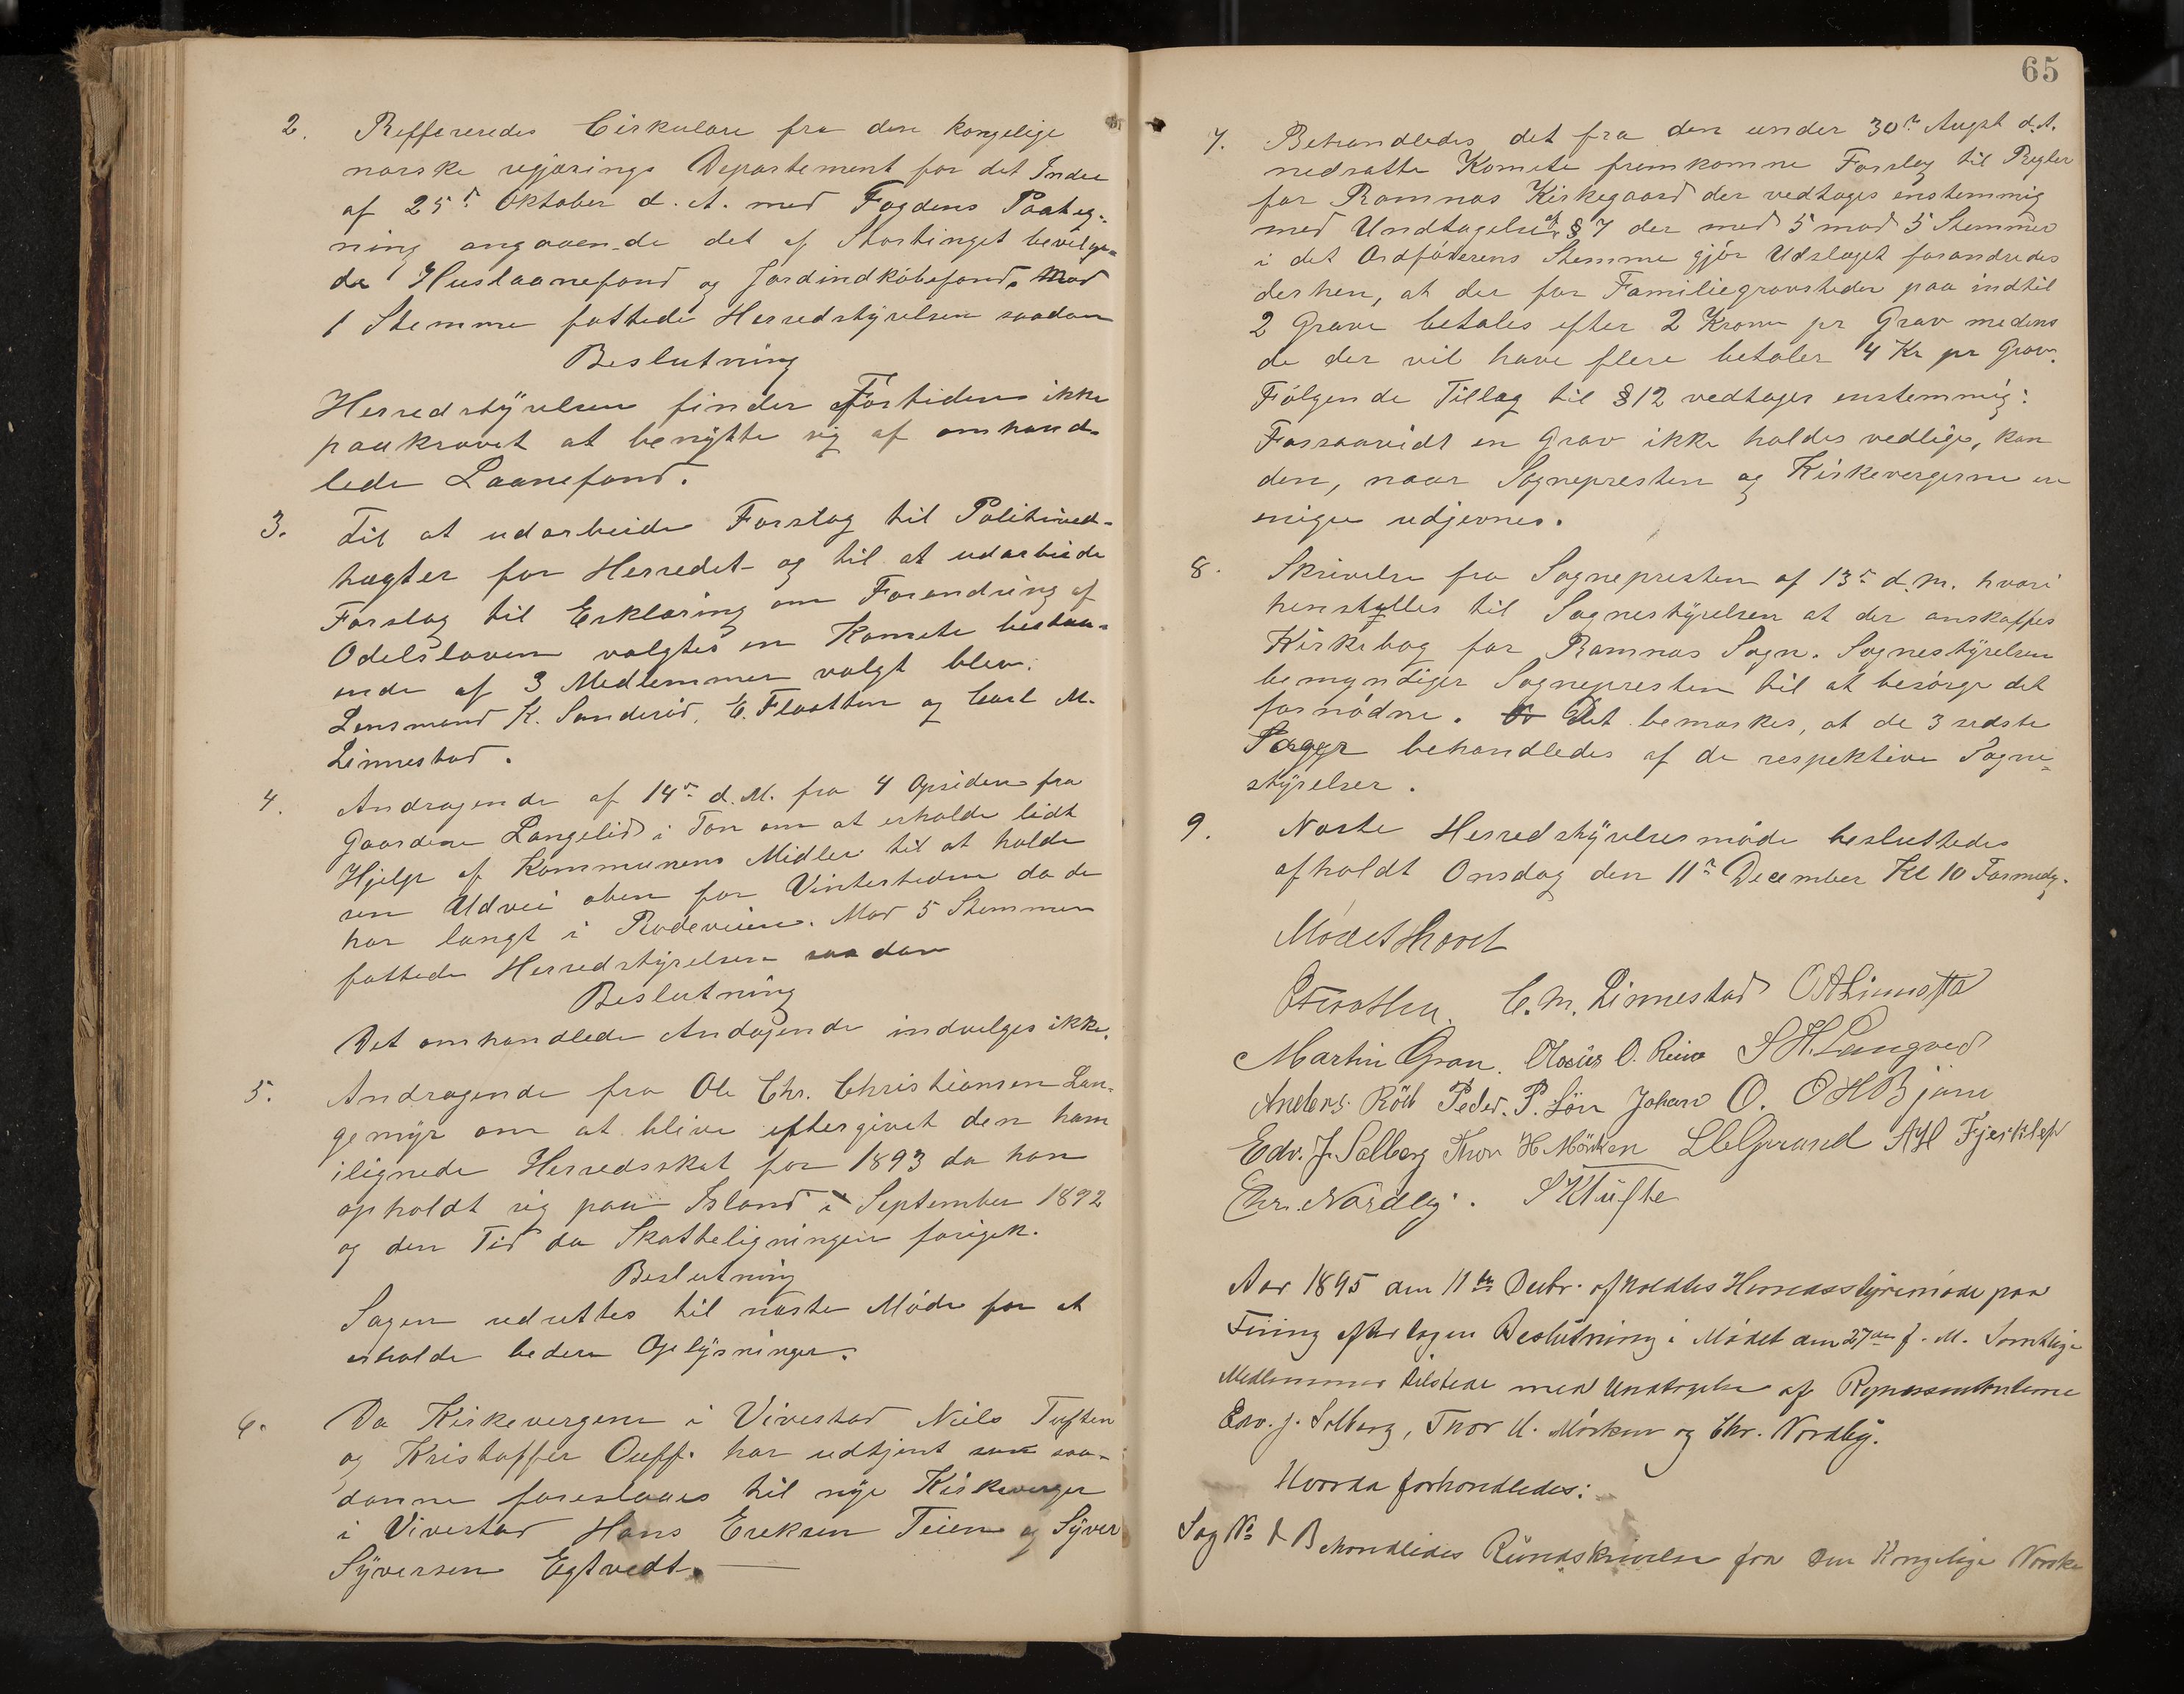 2. Reffereredes Cirkulære fra den kongelige
norske regjærings Departement for det Indre
af 25de Oktober d. A. med Fogdens Paateg-
ning angaaen-de det af Stortinget bevilge-
de Huslaanefond og Jordindkøbsfond. Mod
1 Stemme fattede Herredstyrelsen saadan
Beslutning
Herredstyrelsen finder Fortiden ikke
paakrævet at benytte sig af omhand-
lede Laanefond.
3. Til at udarbeide Forslag til Politived-
tægter for Herredet og til at udarbeide
Forslag til Erklæring om Forandring af
Odelsloven valgtes en Komite bestaa-
ende af 3 Medlemmer valgt blev:
Lensmand K. Sanderød, E. Flaatten og Carl M.
Linnestad.
4. Andragende af 14de d. M. fra 4 Opsiddere fra
Gaardene Langelid i Tøn om at erholde lidt
Hjelp af Kommunens Midler til at holde
sin Udvei oben for Vintertiden da de
har langt i Rodeveien. Mod 5 Stemmer
fattede Herredstyrelsen saadan
Beslutning
Det omhandlede Andagende indvelges ikke.
5. Andragende fra Ole Chr. Christiansen Lan-
gemyr om at blive eftergivet den ham
ilignede Herredsskat for 1893 da han
opholdt sig paa Island i September 1892
og den Tid da Skatteligningen foregik.
Beslutning
Sagen udsættes til næste Møde for at
erholde bedere Oplysninger.
6. Da Kirkevergene i Vivestad Niels Tuften
og Kristoffer Ouff. har udtjent som saa-
danne foreslaaes til nye Kirkeverger
i Vivestad Hans Eriksen Teien og Syver
Syversen Egtvedt.
65
7. Behandledes det fra den under 30te Augst d.A.
nedsatte Komite fremkomne Forslag til Regler
for Ramnæs Kirkegaard der vedtoges enstemmig
med Undtagelse af § 7 der med 5 mod 5 Stemmer
i det Ordførerens Stemme gjør Udslaget forandredes
derhen, at der for Familiegravsteder paa indtil
2 Grave betales efter 2 Kroner pr Grav medens
de der vil have flere betaler 4 Kr pr Grav.
Følgende Tillæg til § 12 vedtages enstemmig:
Forsaavidt en Grav ikke holdes vedlige, kan
den, naar Sognepresten og Kirkevergerne er
enige udjevnes.
8. Skrivelse fra Sognepresten af 13de d.M. hvori
henstilles til Sognestyrelsen at der anskaffes
Kirkebog for Ramnæs Sogn. Sognestyrelsen
bemyndiger Sognepresten til at besørge det
fornødne. Det bemærkes, at de 3 sidste
Sager behandledes af de respektive Sogne-
styrelser.
9. Næste Herredstyrelsesmøde besluttedes
afholdt Onsdag den 11te December Kl 10 Formdg.
Mødet hævet
EFlaatten. C. M. Linnestad OALinnestad
Martin Gran. Olaus O. Rein S H Langved
Anders Röd Peder. P. Lön Johan O. O H Bjøne
Edv. J. Solberg Thor H Mörken A H Fjerskilep
Chr. Nordby. S K Tufte
Aar 1895 den 11te Decbr. afholdtes Herredsstyremøde paa
Firing efter tagen Beslutning i Mødet den 27de f. M. Samtlige
Medlemmer tilstede med Undtagelse af Repræsentanterne
Edv. J. Solberg, Thor H. Mörken og Chr. Nordby.
Hvorda forhandledes:
Sag No 1 Behandledes Rundskrivelse fra Den Kongelige Norske